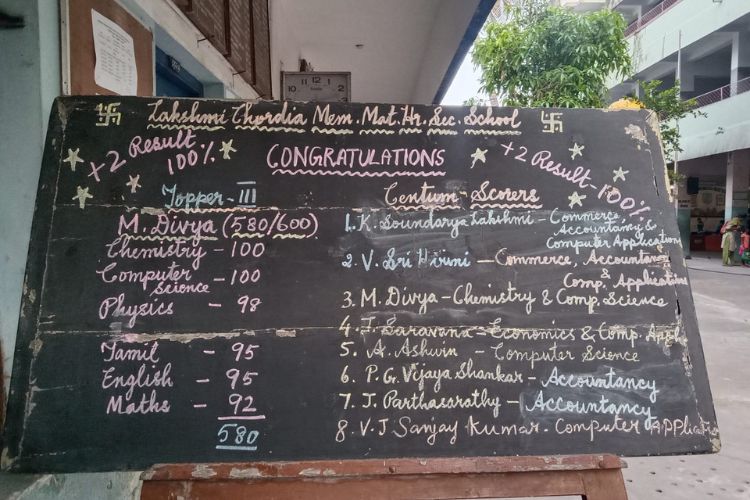 Lakshmi Chordia Mem. Mat. Hr. Sec. School
+2 Result
100%
CONGRATULATIONS
+2 Result-100%
Topper-III
M. Divya (580/600)
Chemistry - 100
Computer Science - 100
Physics - 98
Tamil - 95
English - 95
Maths - 92
580
Centum-Scorers
1. K. Soundarya Lakshmi - Commerce,
Accountancy &
Computer Application
2. V. Sri Hirini - Commerce, Accountancy
&
Comp. Application
3. M. Divya - Chemistry & Comp. Science
4. J. Saravana - Economics & Comp. Appl
5. A. Ashwin - Computer Science
6. P. G. Vijaya Shankar - Accountancy
7. J. Parthasarathy - Accountancy
8. V. J Sanjay Kumar - Computer APPlicatio